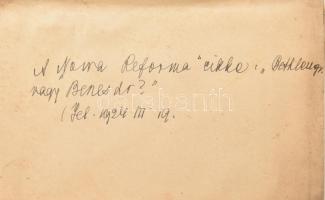 A "Nowa Reforma" cikke: "Bethlen gr.
vagy Benes dr?"
(Jel. 1924 III 19.
darabanth